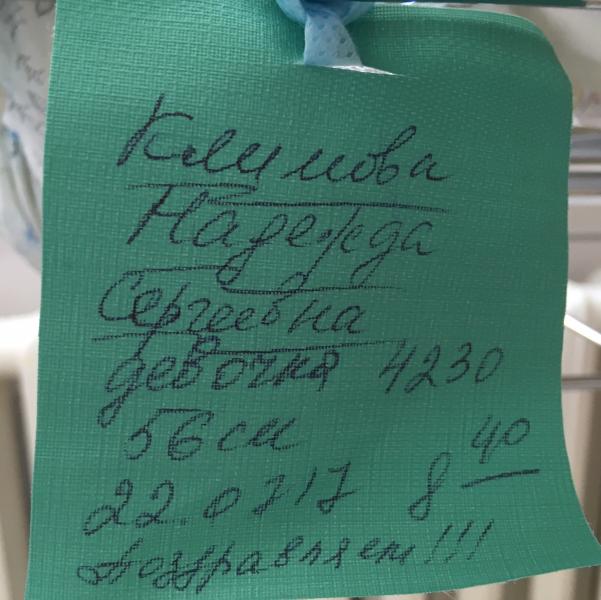 Климова
Надежда
Сергеевна
девочка 4230
56 см
22.07 17 8 40
Поздравляем!!!